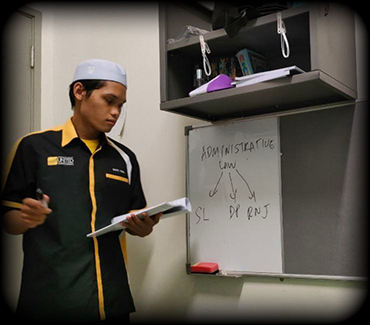 ADMINISTRATIVE
LAW
SL DP RNJ